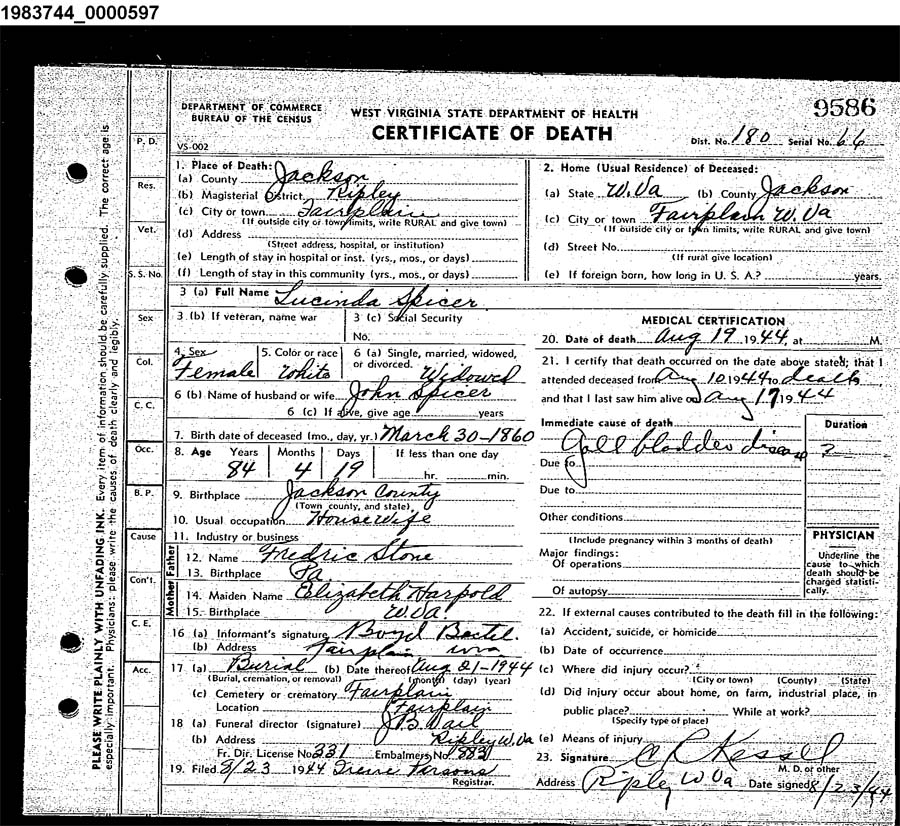 1983744_0000597
9586
DEPARTMENT OF COMMERCE
BUREAU OF THE CENSUS
WEST VIRGINIA STATE DEPARTMENT OF HEALTH
CERTIFICATE OF DEATH
VS-002
Dist. No. 180 Serial No. 66
PLEASE WRITE PLAINLY WITH UNFADING INK. Every item of information should be carefully supplied. The correct age is
especially important. Physicians: please write the causes of death clearly and legibly.
P. D.
Res.
Vet.
S. S. No.
Sex
Col.
C. C.
Occ.
B. P.
Cause
Con't.
C. E.
Acc.
1. Place of Death:
(a) County Jackson
(b) Magisterial District Ripley
(c) City or town Fairplain
(If outside city or town limits, write RURAL and give town)
(d) Address
(Street address, hospital, or institution)
(e) Length of stay in hospital or inst. (yrs., mos., or days)
(f) Length of stay in this community (yrs., mos., or days)
2. Home (Usual Residence) of Deceased:
(a) State W.Va (b) County Jackson
(c) City or town Fairplain W.Va
(If outside city or town limits, write RURAL and give town)
(d) Street No.
(If rural give location)
(e) If foreign born, how long in U. S. A.? years.
3 (a) Full Name Lucinda Spicer
3 (b) If veteran, name war
3 (c) Social Security
No.
4. Sex
Female
5. Color or race
White
6 (a) Single, married, widowed,
or divorced. Widowed
6 (b) Name of husband or wife John Spicer
6 (c) If alive, give age years
7. Birth date of deceased (mo., day, yr.) March 30-1860
8. Age Years Months Days If less than one day
84 4 19 hr. min.
9. Birthplace Jackson County
(Town county, and state)
10. Usual occupation Housewife
11. Industry or business
Father
12. Name Fredric Stone
13. Birthplace Pa.
Mother
14. Maiden Name Elizabeth Harpold
15. Birthplace W.Va.
16 (a) Informant's signature Boyd Bactel.
(b) Address Fairplain wva
17 (a) Burial (b) Date thereof Aug 21-1944
(Burial, cremation, or removal) (month) (day) (year)
(c) Cemetery or crematory Fairplain
Location Fairplain
18 (a) Funeral director (signature) J.B. Vail
(b) Address Ripley W.Va
Fr. Dir. License No. 331 Embalmers No. 883
19. Filed 8/23 1944 Irene Parsons
Registrar.
MEDICAL CERTIFICATION
20. Date of death Aug 19 1944, at M.
21. I certify that death occurred on the date above stated; that I
attended deceased from Aug 10 1944 to death
and that I last saw him alive on Aug 17, 1944
Immediate cause of death
Gall bladder disease
Due to
Due to
Other conditions
(Include pregnancy within 3 months of death)
Major findings:
Of operations
Of autopsy
Duration
?
PHYSICIAN
Underline the
cause to which
death should be
charged statisti-
cally.
22. If external causes contributed to the death fill in the following:
(a) Accident, suicide, or homicide
(b) Date of occurrence
(c) Where did injury occur?
(City or town) (County) (State)
(d) Did injury occur about home, on farm, industrial place, in
public place? While at work?
(Specify type of place)
(e) Means of injury
23. Signature C R Kessel
M. D. or other
Address Ripley W Va Date signed 8/23/44